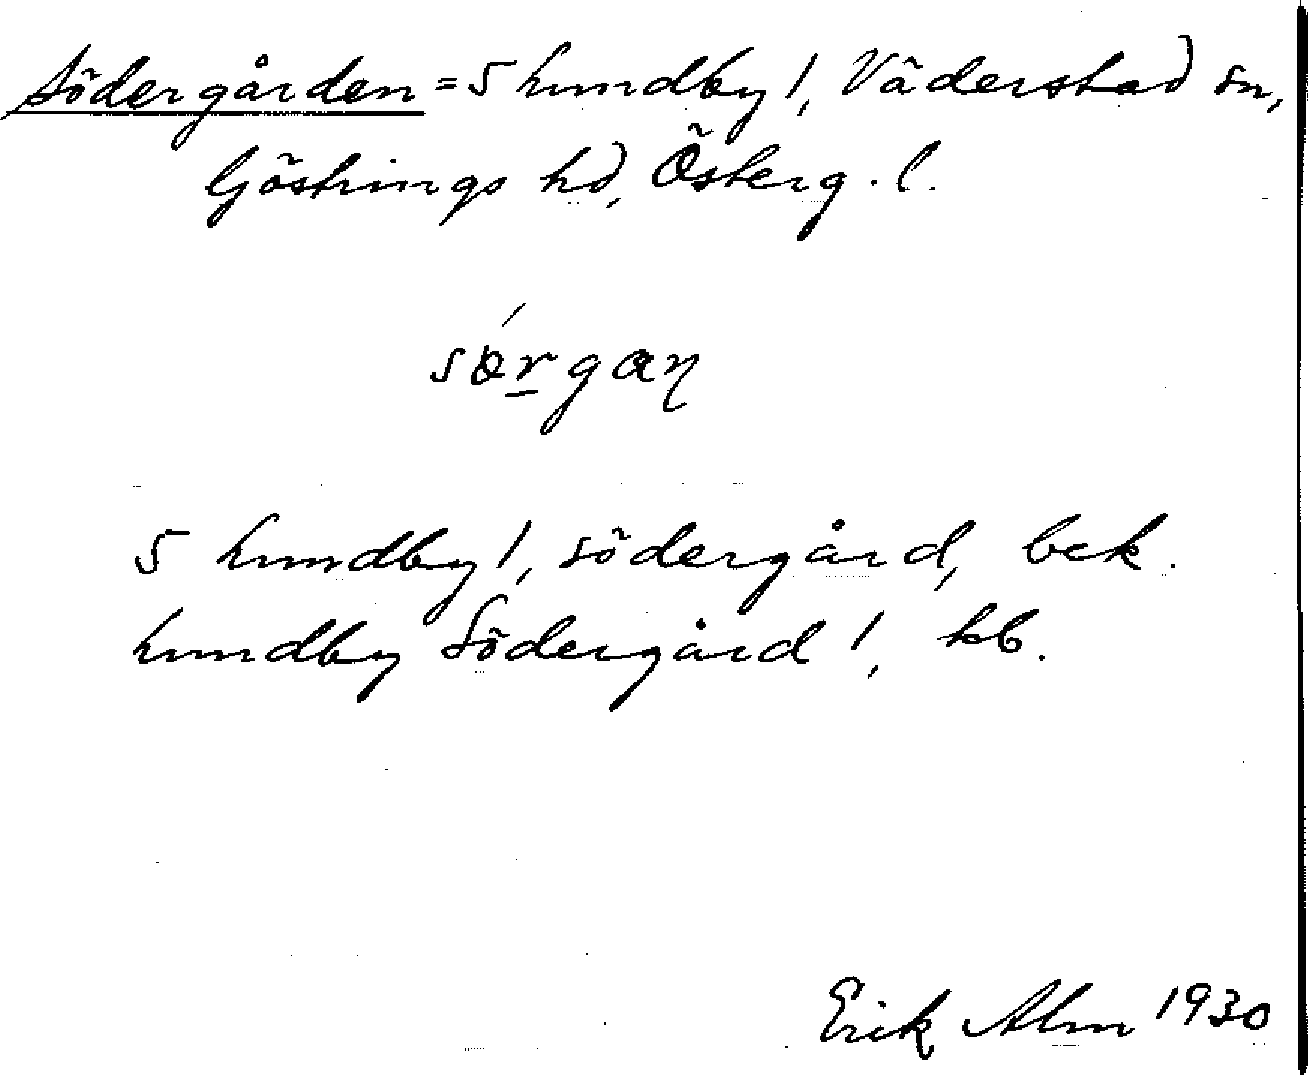 Södergården = 5 Lundby 1, Väderstad sn,
Göstrings hd, Österg. l.
sǿr̲gaɳ
5 Lundby 1, södergård, bek.
Lundby Södergård 1, kb.
Erik Alm 1930